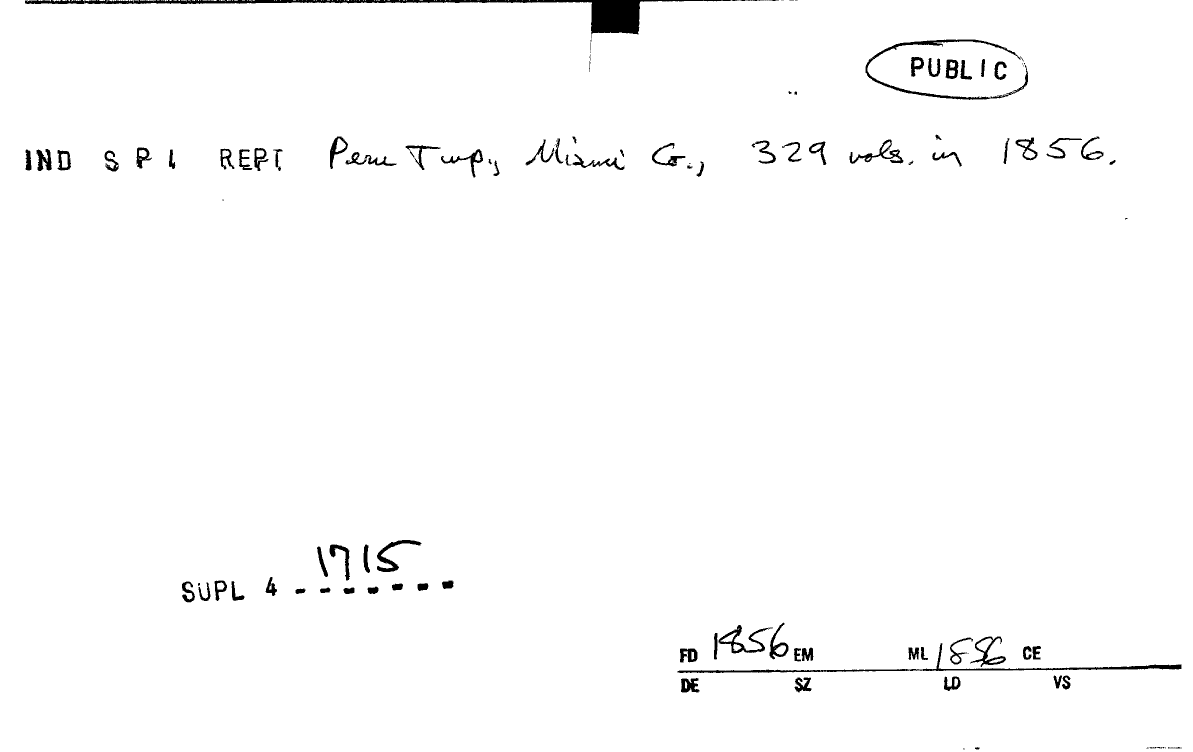 PUBLIC
IND S P I REPT Peru Twp, Miami Co., 329 vols. in 1856.
1715
SUPL 4 - - - - - - -
FD 1856 EM ML 1856 CE
DE SZ LD VS